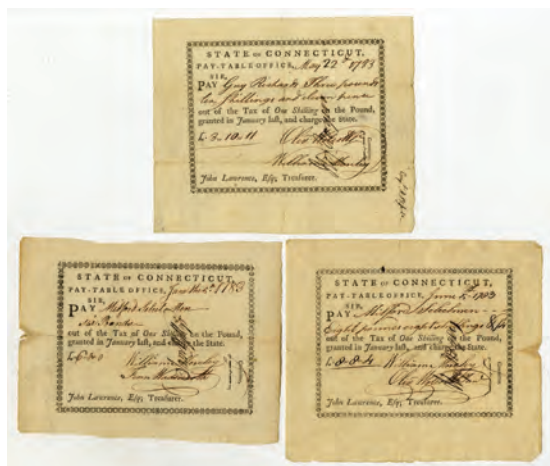 STATE OF CONNECTICUT,
PAY-TABLE OFFICE, May 22d 1783
SIR,
PAY Guy Richards Three pounds
ten shillings and eleven pence
out of the Tax of One Shilling on the Pound,
granted in January last, and charge the State.
£ 3-10-11
William
John Lawrence, Esq; Treasurer.
STATE OF CONNECTICUT,
PAY-TABLE OFFICE, 1783
SIR,
PAY Milford Select Men
six Pounds
out of the Tax of One Shilling on the Pound,
granted in January last, and charge the State.
£6
William
John Lawrence, Esq; Treasurer.
STATE OF CONNECTICUT,
PAY-TABLE OFFICE, June 1783
SIR,
PAY Milford Selectmen
Eight pounds eight shillings
out of the Tax of One Shilling on the Pound,
granted in January last, and charge the State.
£ 8-8-4
William
John Lawrence, Esq; Treasurer.